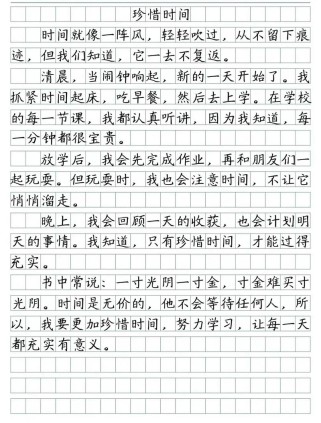 珍惜时间
时间就像一阵风，轻轻吹过，从不留下痕
迹，但我们知道，它一去不复返。
清晨，当闹钟响起，新的一天开始了。我
抓紧时间起床，吃早餐，然后去上学。在学校
的每一节课，我都认真听讲，因为我知道，每
一分钟都很宝贵。
放学后，我会先完成作业，再和朋友们一
起玩耍。但玩耍时，我也会注意时间，不让它
悄悄溜走。
晚上，我会回顾一天的收获，也会计划明
天的事情。我知道，只有珍惜时间，才能过得
充实。
书中常说：一寸光阴一寸金，寸金难买寸
光阴。时间是无价的，他不会等待任何人，所
以，我要更加珍惜时间，努力学习，让每一天
都充实有意义。